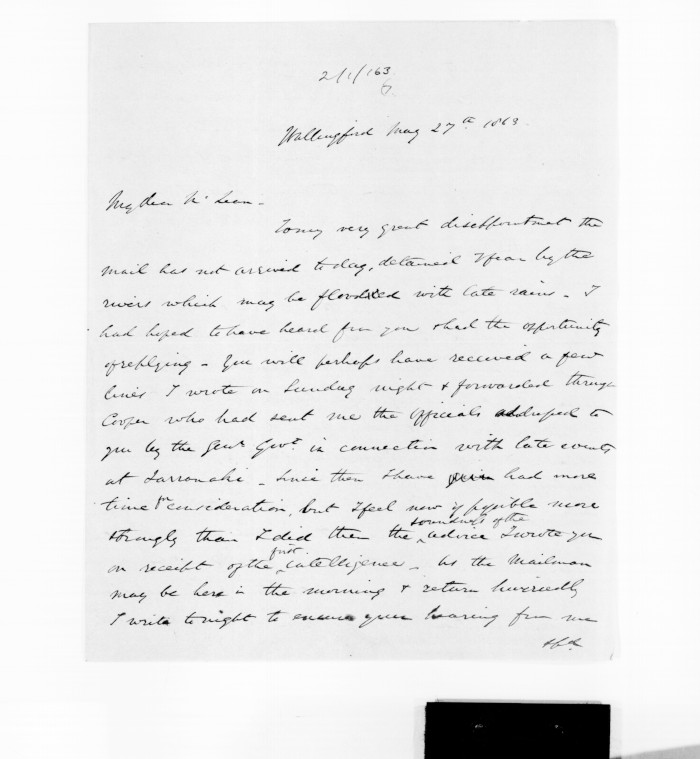 2/1/163
6
Wallingford May 27th 1863.
My dear McLean -
To my very great disappointment the
mail has not arrived to day, detained I fear by the
rivers which may be flooded with late rains - I
had hoped to have heard from you & had the opportunity
of replying - You will perhaps have received a few
lines I wrote on Sunday night & forwarded through
Cooper who had sent me the officials addressed to
you by the Genl Govt in connection with late events
at Tarranaki - Since then I have had more
time for consideration, but I feel now if possible more
strongly than I did then the soundness of the advice I wrote you
on receipt of the first intelligence - As the Mailman
may be here in the morning & return hurriedly
I write to night to ensure your hearing from me